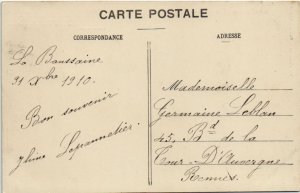 CARTE POSTALE
CORRESPONDANCE
ADRESSE
La Baussaine
31 Xbre 1910.
Bon souvenir
Mademoiselle
Germaine Leblan
45, Bd de la
Tour-D'Auvergne
Rennes